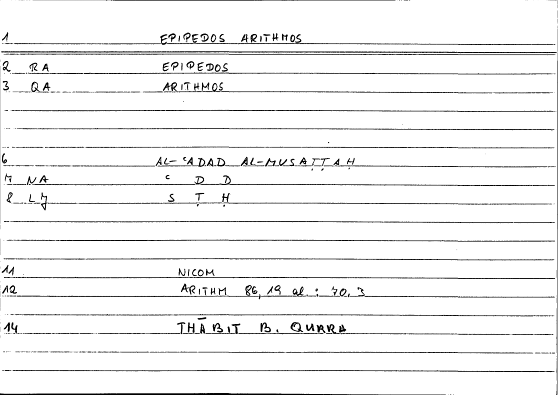 1 EPIPEDOS ARITHMOS
2 RA EPIPEDOS
3 QA ARITHMOS
6 AL-ʿADAD AL-MUSAṬṬAḤ
7 NA ʿ D D
8 LJ S Ṭ Ḥ
11 NICOM
12 ARITHM 86,19 al : 70.3
14 THĀBIT B. QURRA